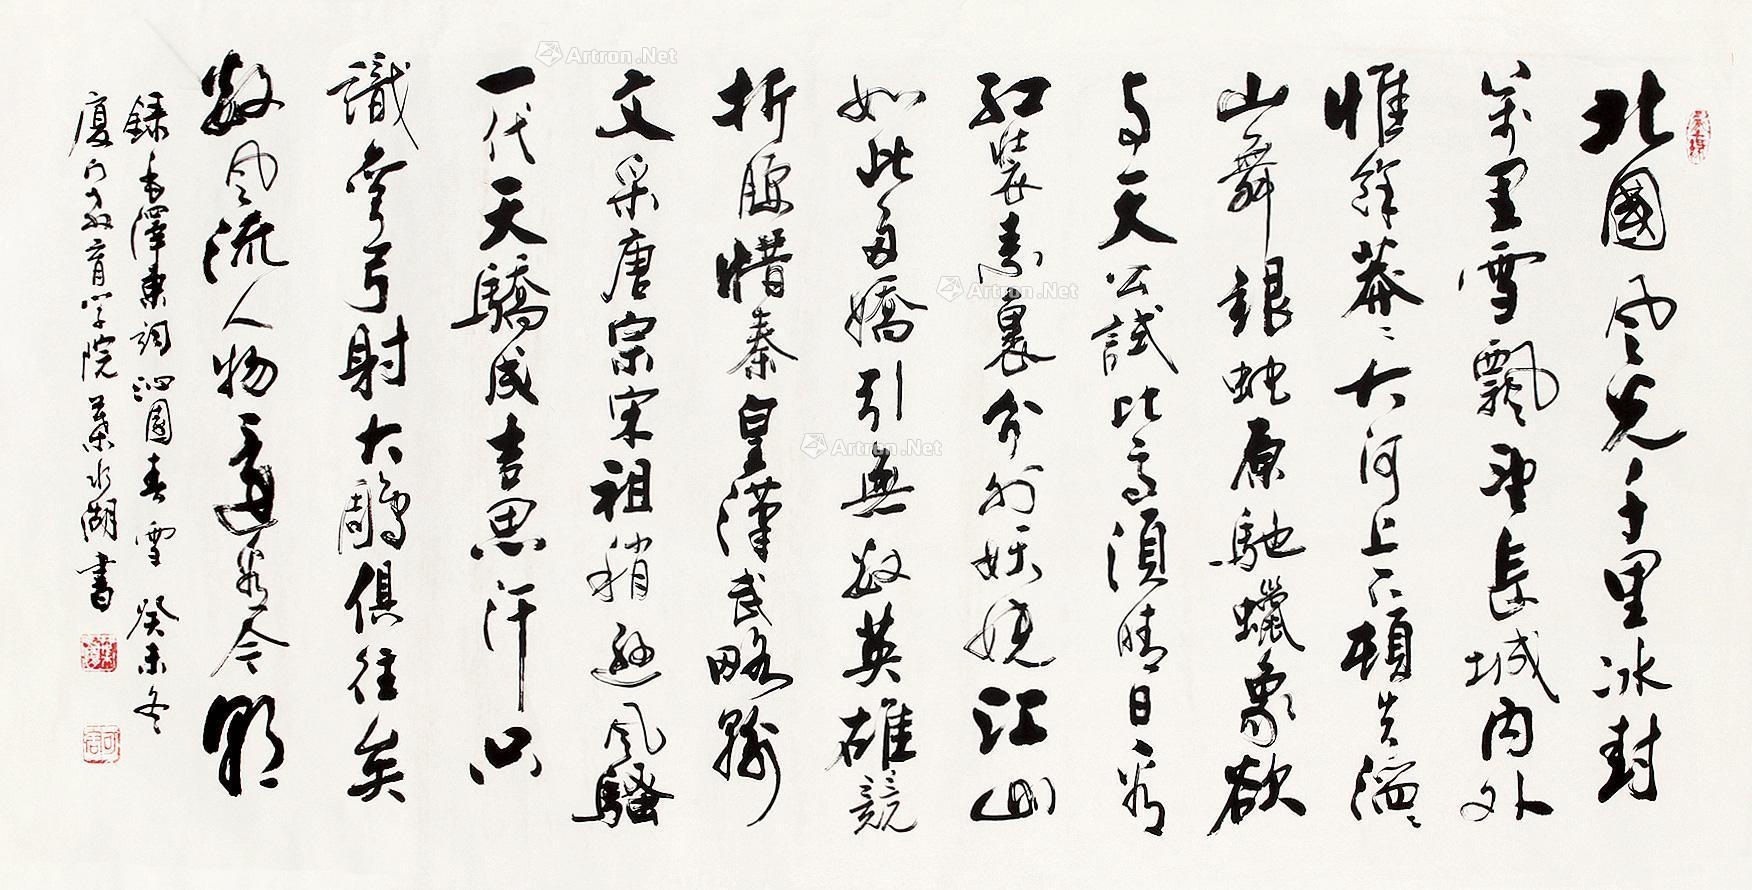 北國风光千里冰封
萬里雪飄望長城内外
惟餘莽々大河上下頓失滔々
山舞銀蛇原馳蠟象欲
与天公試比高須晴日看
紅裝素裹分外妖嬈江山
如此多嬌引無数英雄競
折腰惜秦皇漢武略輸
文采唐宗宋祖稍遜风騷
一代天驕成吉思汗只
識彎弓射大鵰俱往矣
数风流人物還看今朝
錄毛澤東詞沁園春雪 癸未冬
廈门教育学院葉水湖書
Artron.Net
Artron.Net
Artron.Net